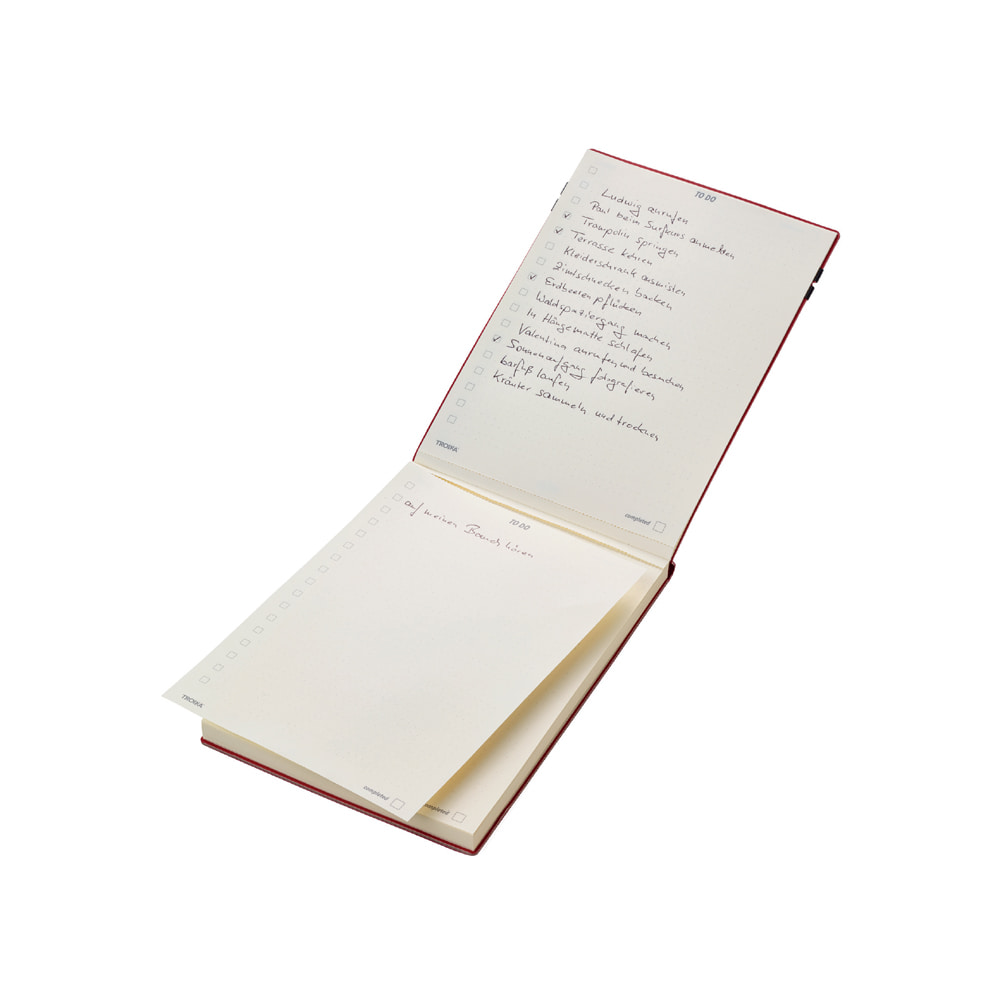 TO DO
Ludwig anrufen
Paul beim Surfkurs anmelden
Trampolin springen
Terrasse kehren
Kleiderschrank ausmisten
Zimtschnecken backen
Erdbeeren pflücken
Waldspaziergang machen
In Hängematte schlafen
Valentina anrufen und besuchen
Sonnenaufgang fotografieren
barfuß laufen
Kräuter sammeln und trocknen
TROIKA
completed
TO DO
auf meinen Bauch hören
TROIKA
completed
completed